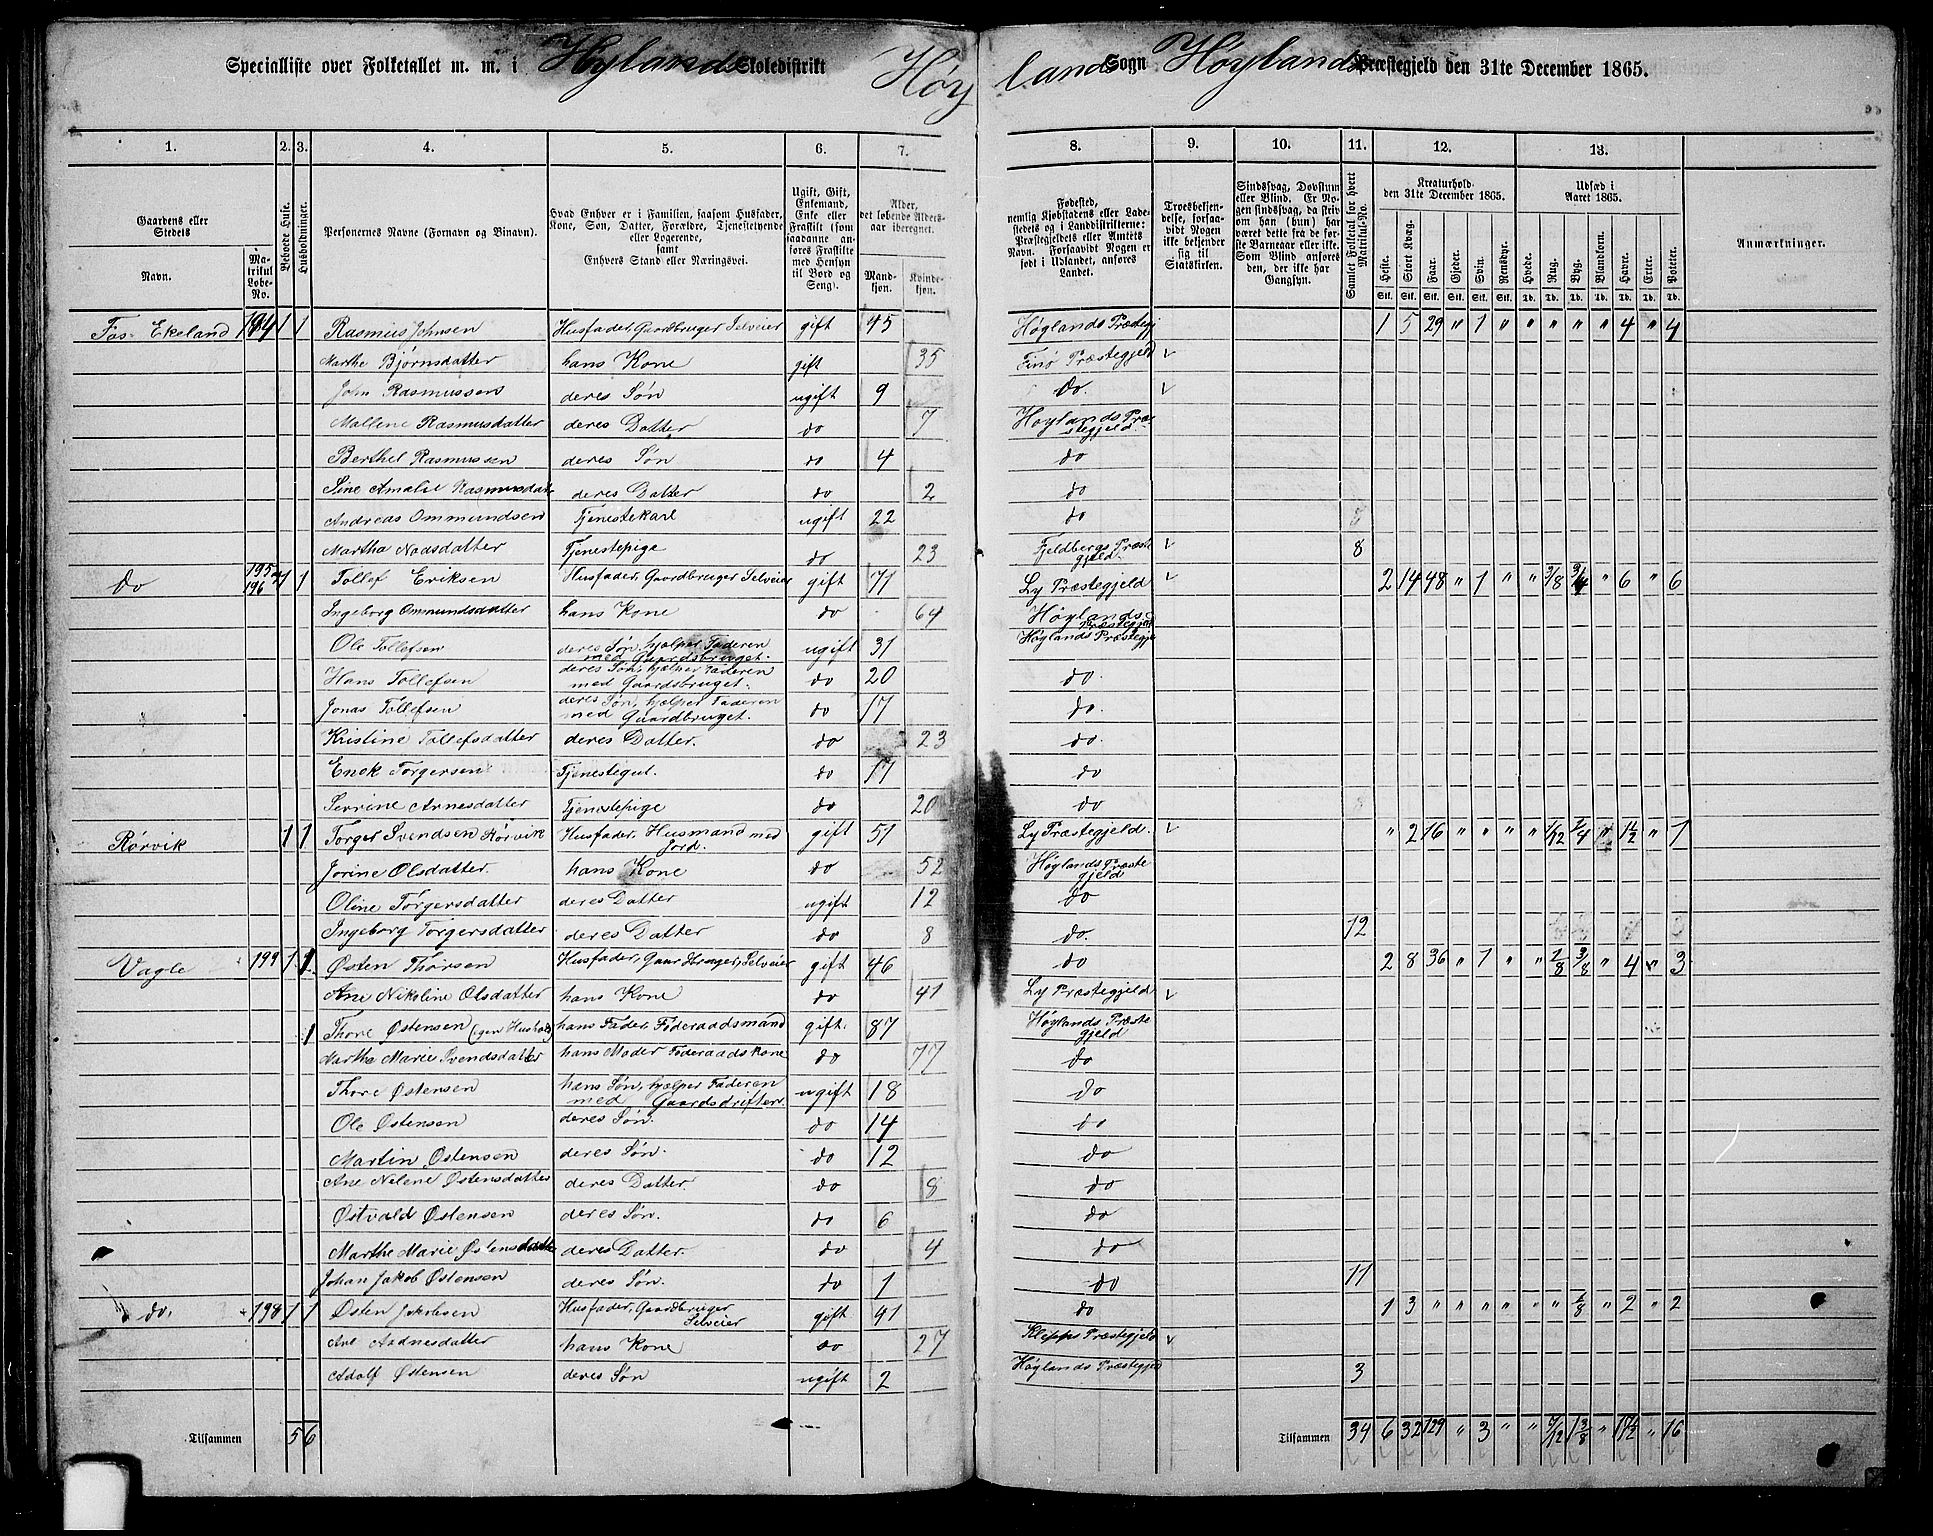 Specialliste over Folketallet m. m. i Høylands Skoledistrikt Høylands Sogn Høylands Præstegjeld den 31te December 1865.
1. 2. 3. 4. 5. 6. 7. 8. 9. 10. 11. 12. 13.
Gaardens eller Stedets Navn.
Matrikul Løbe-No.
Beboede Huse.
Husholdninger.
Personernes Navne (Fornavn og Binavn).
Hvad Enhver er i Familien, saasom Husfader, Kone, Søn, Datter, Forældre, Tjenestetyende eller Logerende, samt Enhvers Stand eller Næringsvei.
Ugift, Gift, Enkemand, Enke eller Fraskilt (som saadanne anføres Fraskilte med Hensyn til Bord og Seng).
Alder, det løbende Aldersaar iberegnet.
Mandkjøn. Kvindekjøn.
Fødested, nemlig Kjøbstadens eller Ladestedets og i Landdistrikterne: Præstegjeldets eller Amtets Navn. Forsaavidt Nogen er født i Udlandet, anføres Landet.
Troesbekjendelse, forsaavidt Nogen ikke bekjender sig til Statskirken.
Sindssvag, Døvstum eller Blind. Er Nogen sindssvag, da skrives om han (hun) har været dette fra de første Barneaar eller ikke. Som Blind anføres den, der ikke har Gangsyn.
Samlet Folketal for hvert Matrikul-No.
Kreaturhold den 31te December 1865.
Heste. Stort Kvæg. Faar. Gjeder. Svin. Rensdyr.
Udsæd i Aaret 1865.
Hvede. Rug. Byg. Blandkorn. Havre. Erter. Poteter.
Stk. Stk. Stk. Stk. Stk. Stk. Td. Td. Td. Td. Td. Td. Td.
Anmærkninger.
Fos- Ekeland 194 1 1 Rasmus Johnsen Husfader, Gaardbruger Selveier gift 45 Høylands Præstegj 1 5 29 " 1 " " " " " 4 " 4
Marthe Bjørnsdatter hans Kone gift 35 Finø Præstegjeld
John Rasmussen deres Søn ugift 9 Do.
Mallene Rasmusdatter deres Datter do 7 Høylands Præstegjeld.
Berthel Rasmussen deres Søn do 4 do
Sine Amalie Rasmusdatte deres Datter do 2 do
Andreas Ommundsen Tjenestekarl ugift 22 do
Martha Naasdatter Tjenestepige do 23 Fjeldbergs Præstegjeld. 8
do 195 196 1 1 Tollef Eriksen Husfader, Gaardbruger Selveier gift 71 Ly Præstegjeld 2 14 48 " 1 " " 3/8 3/4 " 6 " 6
Ingeborg Ommundsdatter hans Kone do 64 Høylands Præstegjeld
Ole Tollefsen deres Søn, hjelper Faderen med Gaardsbruget. ugift 31 Høylands Præstegje
Hans Tollefsen deres Søn, hjælper Faderen med Gaardsbruget. do 20 do.
Jonas Tollefsen deres Søn, hjælper Faderen med Gaardbruget. do 17 do.
Kristine Tollefsdatter deres Datter. do 23 do.
Enok Torgersen Tjenestegut. do 17 do
Serrine Arnesdatter Tjenestepige do 20 do
Rørvik 1 1 Torger Svendsen Rørvik Husfader, Husmand med Jord. gift 51 Ly Præstegjeld. " 2 16 " " " " 1/12 1/4 " 1½ " 1
Jorine Olsdatter. hans Kone do 52 Høylands Præstegjeld
Oline Torgersdatter deres Datter ugift 12 do
Ingeborg Torgersdatter deres Datter do 8 do. 12
Vagle 199 1 1 Østen Thorsen Husfader, Gaardbruger, Selveier gift 46 do 2 8 36 " 1 " " 2/8 3/8 " 4 " 3
Ane Nikoline Olsdatter hans Kone do 41 Ly Præstegjeld
1 Thore Østensen (egen Hushold) hans Fader, Føderaadsmand gift. 87 Høylands Præstegjeld
Martha Marie Svendsdatter hans Moder Føderaadskone do 77 do
Thore Østensen hans Søn, hjælper Faderen med Gaardsdriften. ugift 18 do
Ole Østensen deres Søn. do 14 do
Martin Østensen deres Søn. do 12 do
Ane Nelene Østensdatter deres Datter. do 8 do
Østvald Østensen deres Søn. do 6 do
Marthe Marie Østensdatte deres Datter. do 4 do
Johan Jakob Østensen deres Søn. do 1 do 11
do. 198 1 1 Østen Jakobsen Husfader, Gaardbruger Selveier gift 41 do 1 3 " " " " " " 1/8 " 2 " 2
Ane Aadnesdatter hans Kone do 27 Klepps Præstegjeld
Adolf Østensen deres Søn ugift 2 Høylands Præstegjed 3
Tilsammen 5 6 Tilsammen 34 6 32 129 " 3 " " 7/12 1 3/8 " 17½ " 16